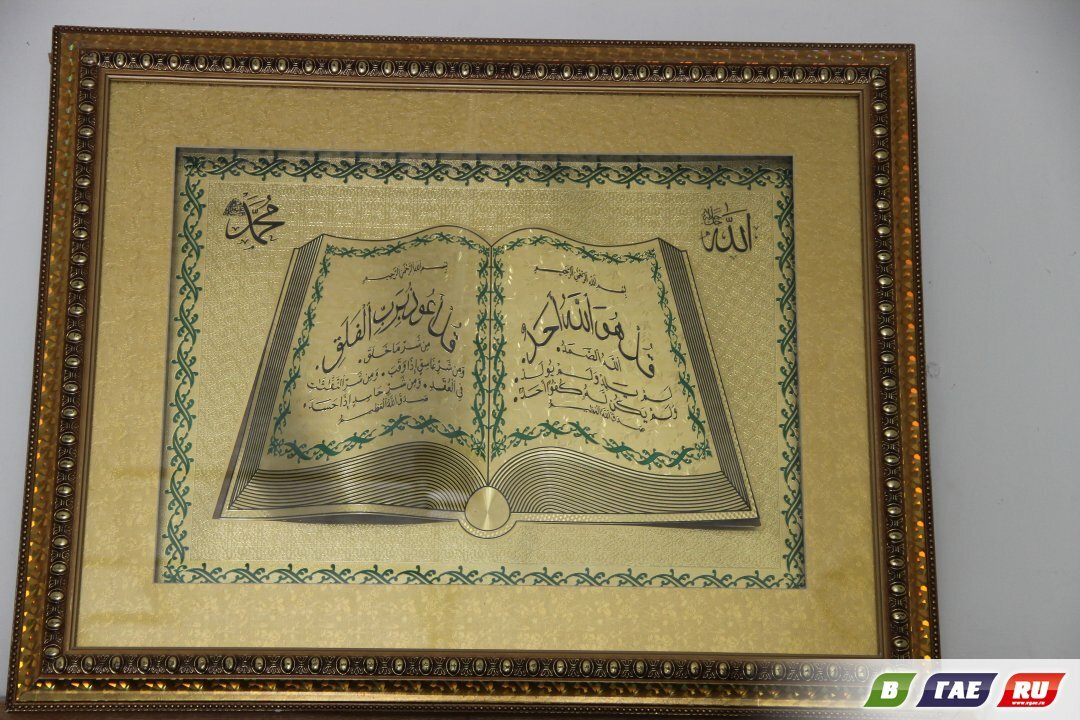 الله جل جلاله
محمد
بسم الله الرحمن الرحيم
قل هو الله أحد
الله الصمد
لم يلد ولم يولد
ولم يكن له كفوا أحد
صدق الله العظيم
بسم الله الرحمن الرحيم
قل أعوذ برب الفلق
من شر ما خلق
ومن شر غاسق إذا وقب ومن شر النفثت
في العقد ومن شر حاسد إذا حسد
صدق الله العظيم
В ГАЕ RU
www.vgae.ru